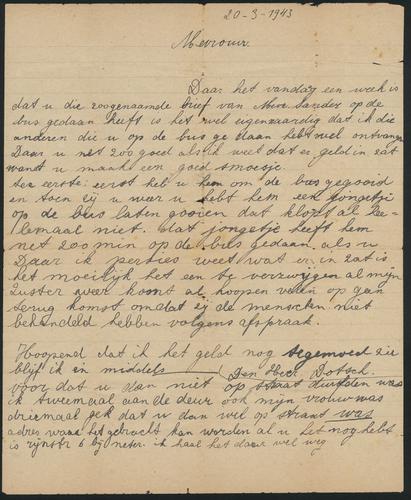 20-3-1943
Mevrouw.
Daar het vandaag een week is
dat u die zoogenaamde brief van Mevr Sander op de
bus gedaan heeft is het wel eigenaardig dat ik die
anderen die u op de bus gedaan hebt wel ontvangen
Daar u net zoo goed als ik weet dat er geld in zat
want u maak een goed smoesje.
ten eerste: eerst heb u hem om de bus gegooid
en toen zij u weer u hebt hem een jongetje
op de bus laten gooien dat klopt al hee-
lemaal niet. dat jongetje heeft hem
net zoo min op de bus gedaan als u
Daar ik persies weet wat er in zat is
het moeilijk het een te verzwijgen al mijn
Zuster weer komt al hoopen velen op gan
terug komst omdat zij de menschen niet
behandeld hebben volgens afspraak.
Hoopend dat ik het geld nog tegemoed zie
blijf ik en middels (Den Heer Dotsch.
voor dat u dan niet op straat durfden was
ik tweemaal aan de deur ook mijn vrouw was
driemaal gek dat u dan wel op straat was
adres waar het gebracht kan worden al u het nog hebt
is rijnstr 6 bij neter. ik haal het daar wel weg